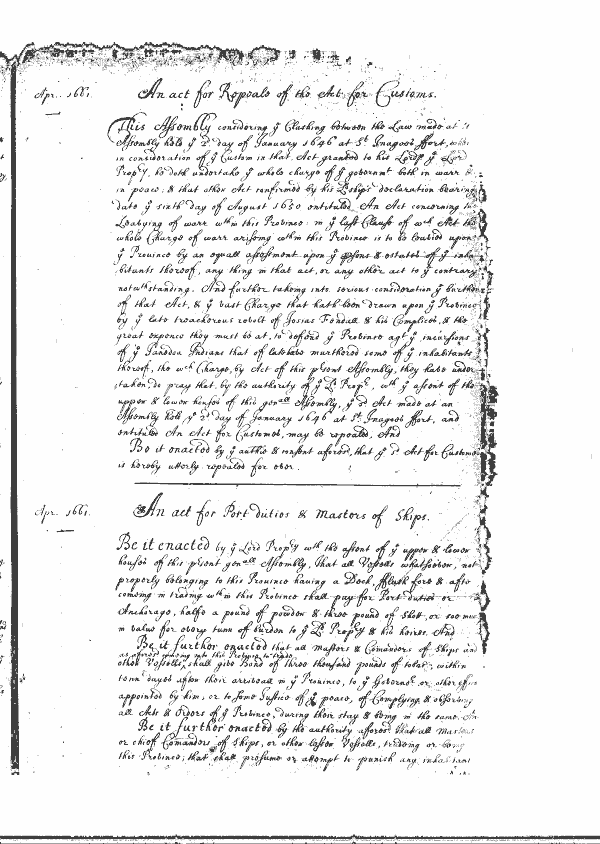 Apr. 1661.
An act for Repeale of the Act for Customs.
This Assembly considering ye Clashing between the Law made at
Assembly held ye 2d day of January 1646 at St. Inagoes ffort,
in consideration of ye Custom in that Act granted to his Lordsp ye Lord
Propry, he doth undertake ye whole charge of ye governmt both in warr &
in peace; & that other Act confirmed by his Lsps declaration bearing
date ye sixth day of August 1650 entituled An Act concerning the
Leavying of warr wthin this Province: in ye last Clause of wch Act the
whole Charge of warr arising wthin this Province is to be leavied upon
ye Province by an equall assessment upon ye psons & estates of ye inha
bitants thereof, any thing in that act, or any other act to ye contrary
notwthstanding. And further taking into serious consideration ye burthen
of that Act, & ye vast Charge that hath been drawn upon ye Province
by ye late treacherous revolt of Josias Fendall & his Complices, & the
great expence they must be at, to defend ye Province agt ye incursions
of ye Indians that of late have murthered some of ye inhabitants
thereof, the wch Charge, by Act of this psent Assembly, they have under
taken do pray that, by the authority of ye Ld Propry, wth ye assent of the
upper & lower houses of this genall Assembly, ye sd Act made at an
Assembly held ye 2d day of January 1646 at St. Inagoes ffort, and
entituled An Act for Customes, may be repealed, And
Be it enacted by ye autho & consent aforesd, that ye sd Act for Customs
is hereby utterly repealed for ever.
Apr. 1661.
An act for Port duties & Masters of Ships.
Be it enacted by ye Lord Propry wth the assent of ye upper & lower
houses of this psent genall Assembly, That all Vessells whatsoever, not
properly belonging to this Province having a Deck, fflush fore & afte
coming in trading wthin this Province shall pay for Port duties or
Anchorage, halfe a pound of powder & three pound of Shott, or soe much
in value for every tunn of burden to ye Ld Propry & his heires. And
Be it further enacted that all Masters & Comanders of Ships and
as aforesd coming into this Province to trade
other Vessells, shall give Bond of three thousand pounds of tobac, within
days after their arrivall in ye Province, to ye Governor or other officer
appointed by him, or to some Justice of ye peace, of Complying & observing
all Acts & Orders of ye Province, during their stay & being in the same.
Be it further enacted by the authority aforesd that all Masters
or chieff Comanders of Ships, or other lesser Vessells, trading or being
this Province; that shall presume or attempt to punish any inhabitant